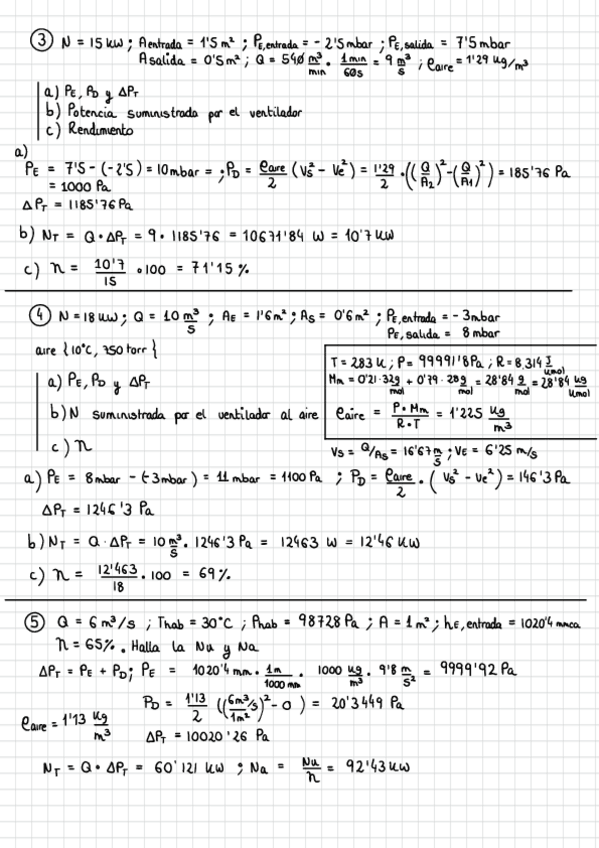 ③ N = 15 kW ; Aentrada = 1'5 m² ; PE,entrada = - 2'5 mbar ; PE,salida = 7'5 mbar
Asalida = 0'5 m² ; Q = 540 m³/min · 1 min/60s = 9 m³/s ; ρaire = 1'29 kg/m³
a) PE, PD y ΔPT
b) Potencia suministrada por el ventilador
c) Rendimiento
a)
PE = 7'5 - (-2'5) = 10 mbar = ; PD = ρaire/2 (Vs² - Ve²) = 1'29/2 · ((Q/A2)² - (Q/A1)²) = 185'76 Pa
= 1000 Pa
ΔPT = 1185'76 Pa
b) NT = Q · ΔPT = 9 · 1185'76 = 10671'84 W = 10'7 KW
c) η = 10'7/15 · 100 = 71'15 %
④ N = 18 kW ; Q = 10 m³/s ; AE = 1'6 m² ; AS = 0'6 m² ; PE,entrada = - 3 mbar
PE, salida = 8 mbar
aire {10°C, 750 torr}
T = 283 K ; P = 99991'8 Pa ; R = 8,314 J/Kmol
Mm = 0'21 · 32 g/mol + 0'79 · 28 g/mol = 28'84 g/mol = 28'84 kg/Kmol
ρaire = P · Mm/R · T = 1'225 kg/m³
a) PE, PD y ΔPT
b) N suministrada por el ventilador al aire
c) η
Vs = Q/As = 16'67 m/s ; VE = 6'25 m/s
a) PE = 8 mbar - (-3 mbar) = 11 mbar = 1100 Pa ; PD = ρaire/2 · (Vs² - Ve²) = 146'3 Pa
ΔPT = 1246'3 Pa
b) NT = Q · ΔPT = 10 m³/s · 1246'3 Pa = 12463 W = 12'46 KW
c) η = 12'463/18 · 100 = 69 %
⑤ Q = 6 m³/s ; Thab = 30°C ; Phab = 98728 Pa ; A = 1 m² ; hE,entrada = 1020'4 mmca
η = 65%. Halla la Nu y Na
ΔPT = PE + PD ; PE = 1020'4 mm · 1m/1000 mm · 1000 kg/m³ · 9'8 m/s² = 9999'92 Pa
PD = 1'13/2 ((6m³/s/1m²)² - 0) = 20'3449 Pa
ρaire = 1'13 kg/m³
ΔPT = 10020'26 Pa
NT = Q · ΔPT = 60'121 KW ; Na = Nu/η = 92'43 KW